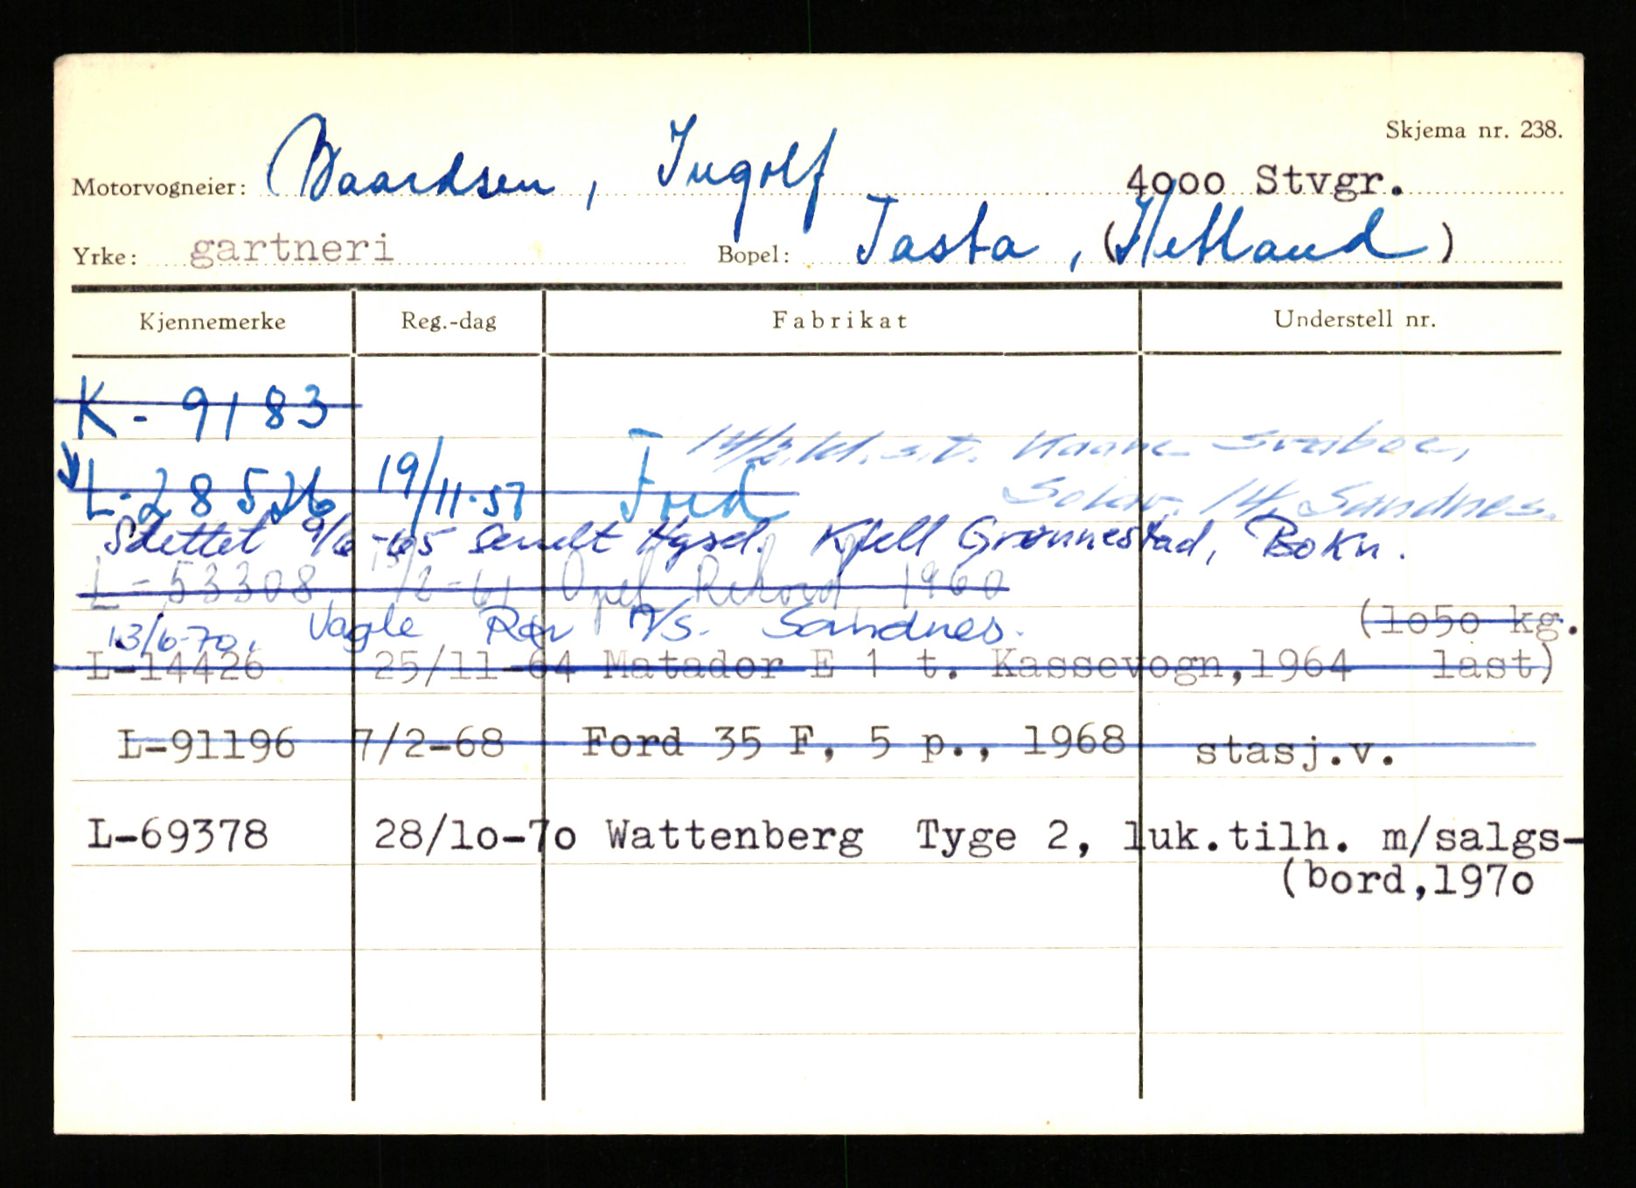 Skjema nr. 238.
Motorvogneier: Baardsen, Ingolf 4000 Stvgr.
Yrke: gartneri Bopel: Tasta, (Hetland)
Kjennemerke Reg.-dag Fabrikat Understell nr.
K - 9183
s.t. Kaare
L-28526 19/11-57 Ford 14, Sandnes.
Slettet 9/6-65 sendt Hgsd. Kjell Grønnestad, Bokn.
L-53308 Opel Rekord 1960
13/6-70, Vagle Rør A/S. Sandnes. (1050 kg.
L-14426 25/11-64 Matador E 1 t. Kassevogn,1964 last)
L-91196 7/2-68 Ford 35 F, 5 p., 1968 stasj.v.
L-69378 28/10-70 Wattenberg Tyge 2, luk.tilh. m/salgs-
(bord,1970